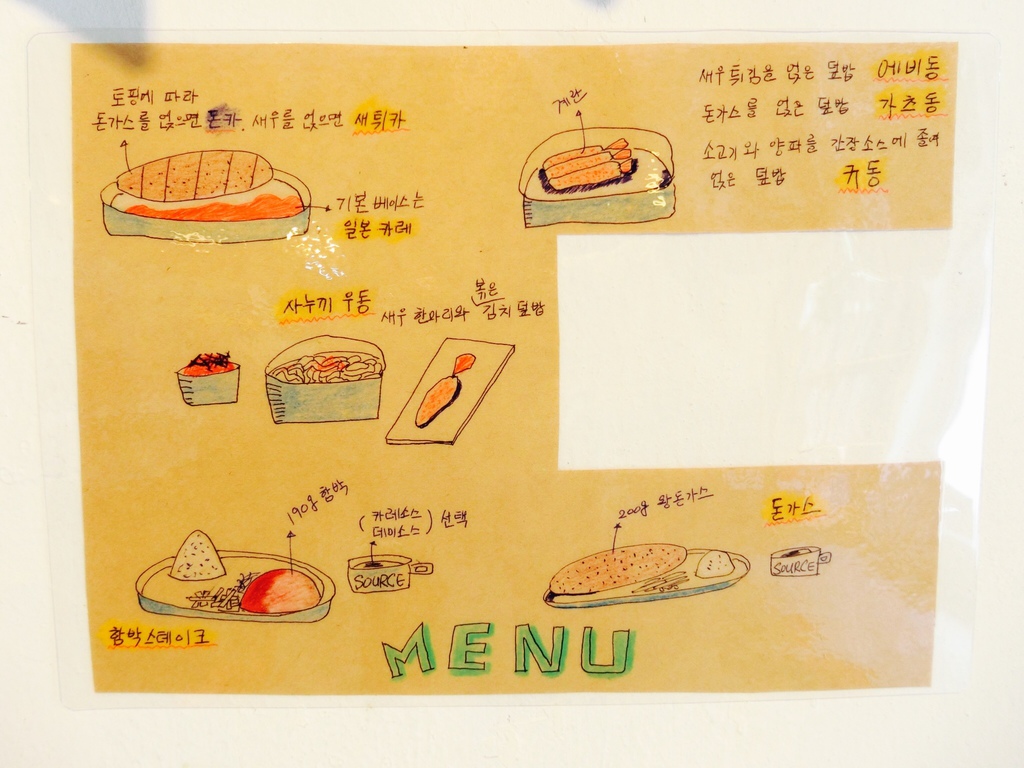 토핑에 따라
돈가스를 얹으면 돈카. 새우를 얹으면 새튀카
기본 베이스는
일본 카레
계란
새우튀김을 얹은 덮밥 에비동
돈가스를 얹은 덮밥 가츠동
소고기와 양파를 간장소스에 졸여
얹은 덮밥 규동
사누끼 우동
새우 한마리와 볶은 김치 덮밥
190g 함박
(카레소스
데미소스) 선택
SOURCE
함박스테이크
200g 왕돈가스
돈가스
SOURCE
MENU